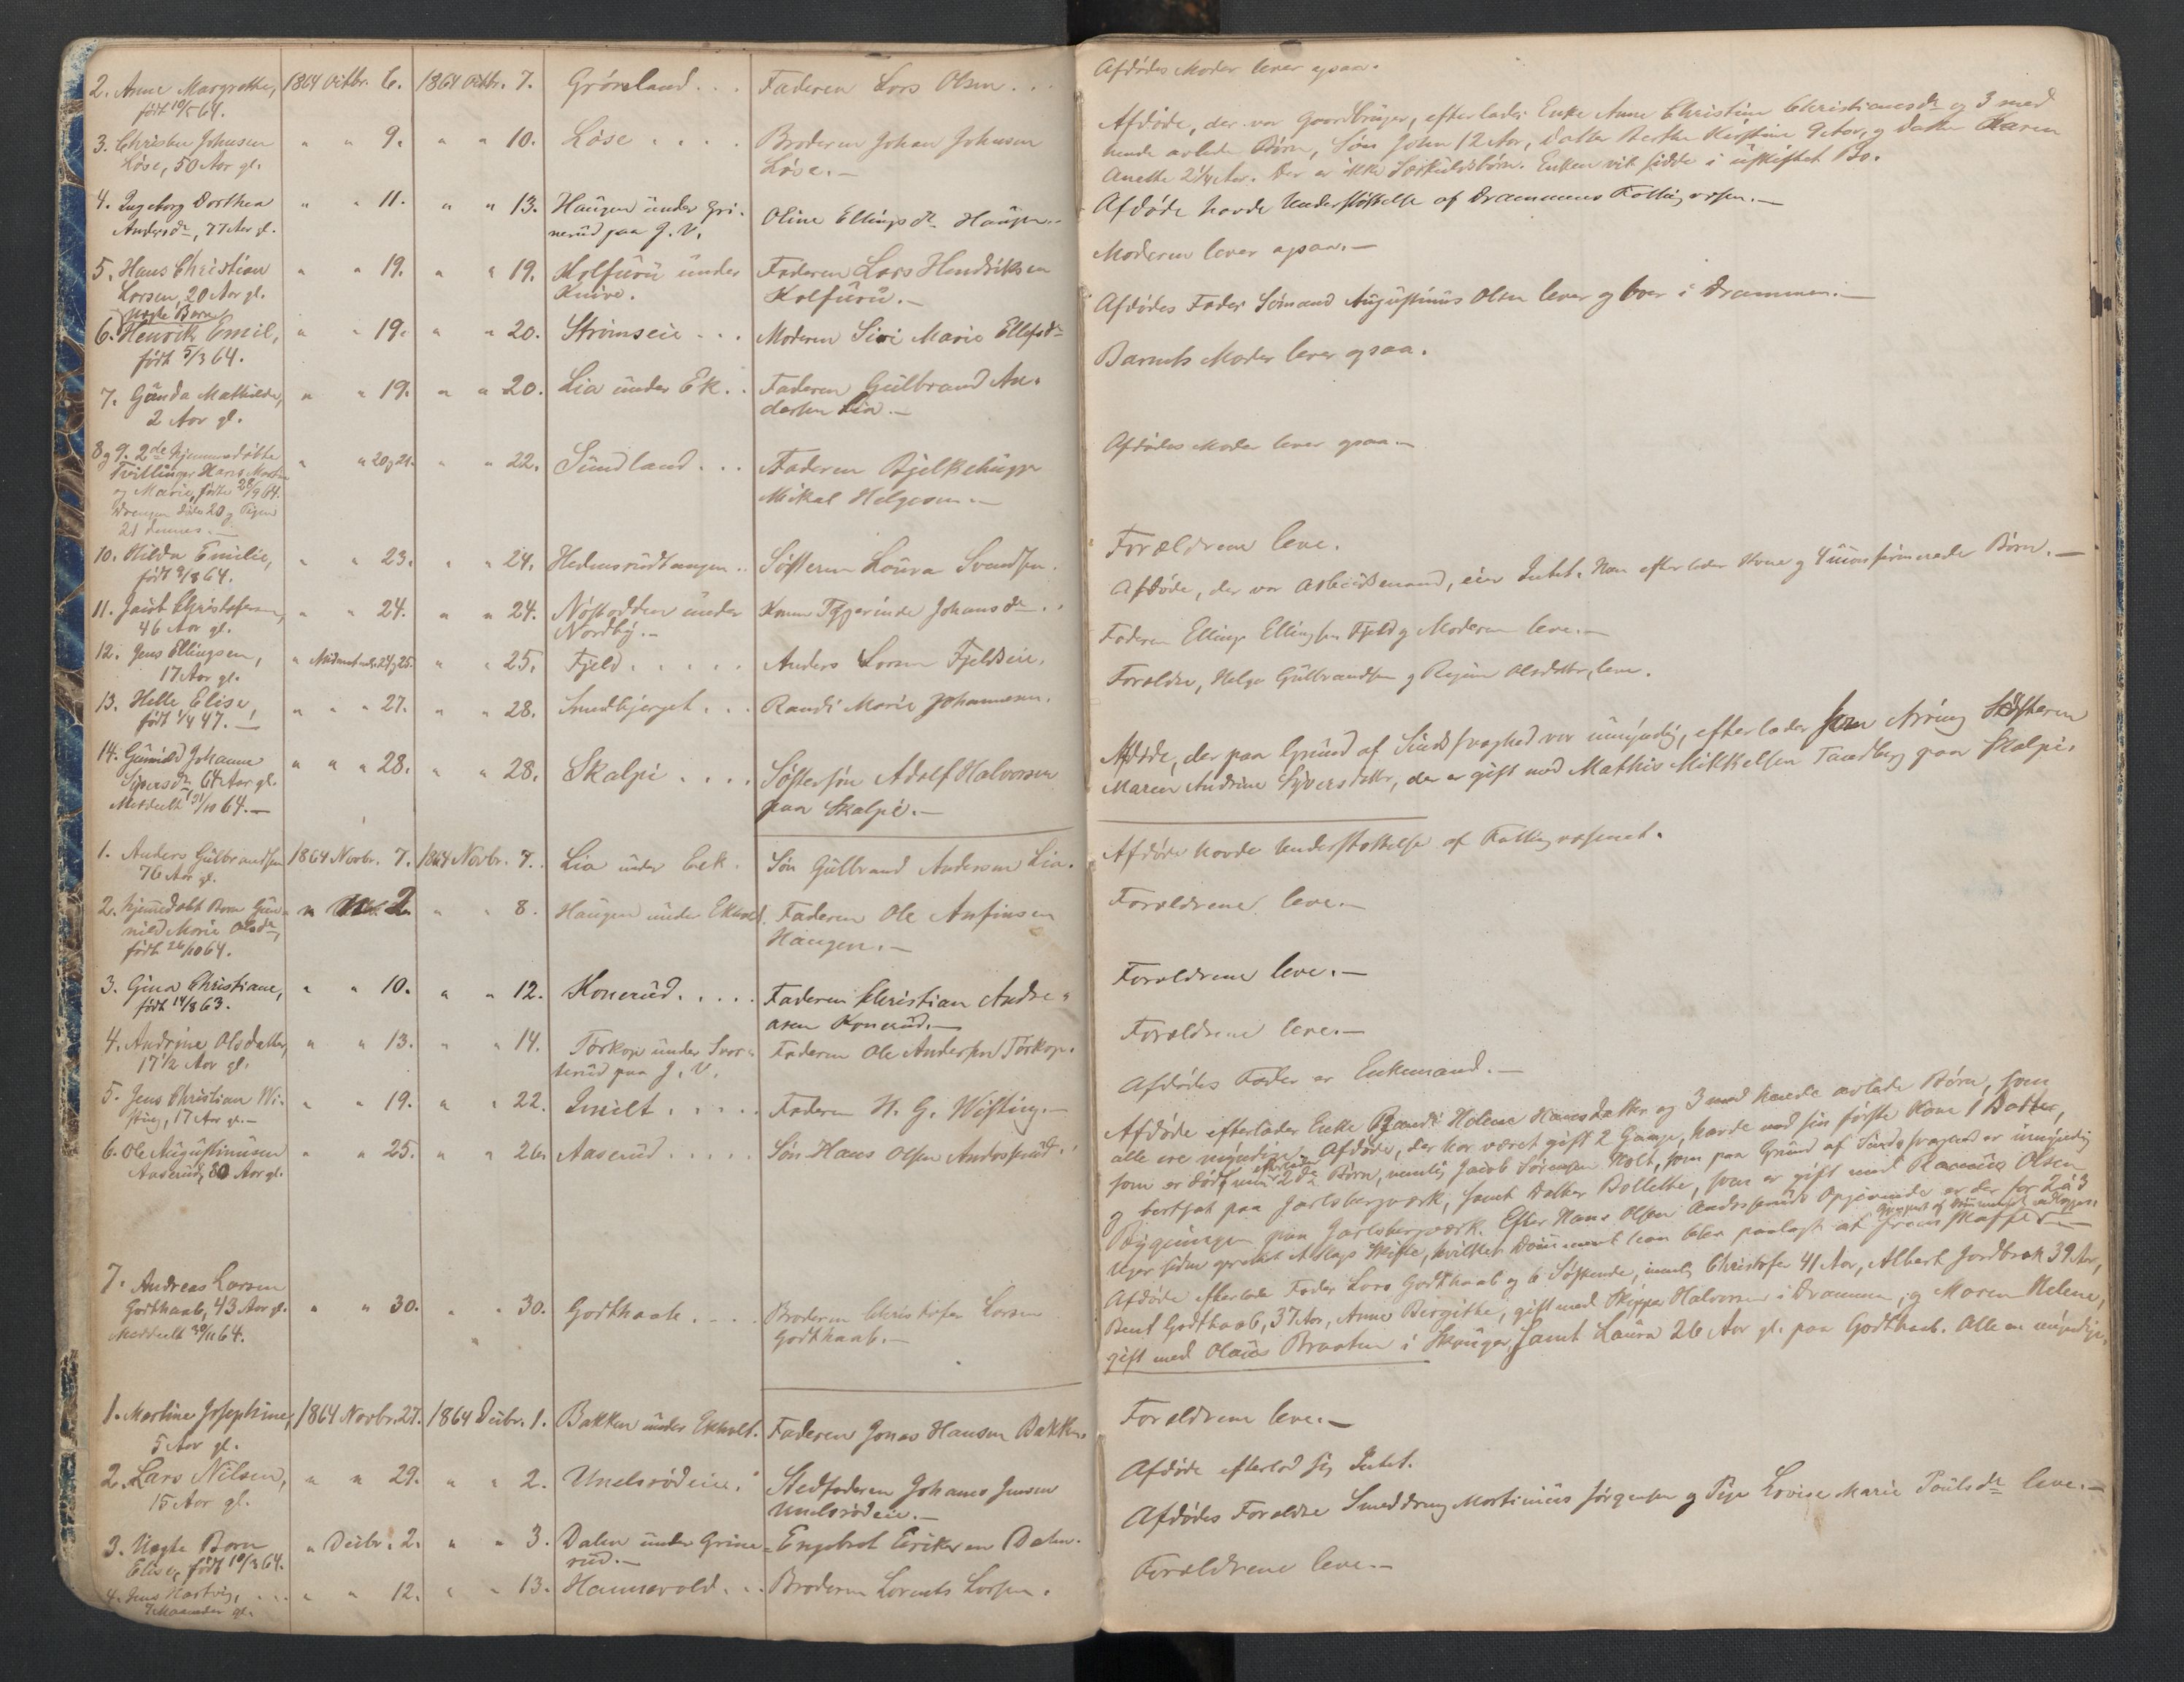 2. Anne Margrethe, 1864 Octbr. 6. 1864 Octbr. 7. Grønland . . . Faderen Lars Olsen . . .
født 10/5 64.
3. Christen Johnsen " " 9. " " 10. Løse . . . . Broderen Johan Johnsen
Løse, 50 Aar gl. Løse.—
4. Ingeborg Dorthea " " 11. " " 13. Haugen under Gri- Oline Ellingsdr Haugen.
Andersdr, 77 Aar gl. nerud paa J. V.
5. Hans Christian " " 19. " " 19. Kolfuru under Faderen Lars Hendriksen
Larsen, 20 Aar gl. Knive. Kolfuru.—
uægte Barn
6. Henrik Emil, " " 19. " " 20. Strømseie . . . Moderen Siri Marie Ellefsdr
født 5/3 64.
7. Gunda Mathilde, " " 19. " " 20. Lia under Ek . . Faderen Gulbrand An-
2 Aar gl. dersen Lia.—
8 og 9. 2de hjemmedøbte " " 20 og 21. " " 22. Sundland . . . Faderen Bjelkehugger
Tvillinger Hans Martin Mikal Helgesen.—
og Marie, fødte 28/9 64.
Drengen døde 20 og Pigen
21 dennes.—
10. Hilda Emilie, " " 23. " " 24. Hedensrudtangen . . Søsteren Laura Svendsen.
født 9/8 64.
11. Jacob Christofersen, " " 24. " " 24. Nøstodden under Konen Johansdr . .
46 Aar gl. Nordby.—
12. Jens Ellingsen, " 24 og 25. " " 25. Fjeld . . . . . Anders Larsen Fjeldseie.
17 Aar gl.
13. Helle Elise, " " 27. " " 28. Smedbjerget . . . Randi Marie Johannesen.
født 1/4 47.—
14. Gunild Johanne " " " 28. " " 28. Skalpe . . . . Søstersøn Adolf Halvorsen
64 Aar gl. paa Skalpe.—
Meddelt 31/10 64.—
1. Anders Gulbrandsen 1864 Novbr. 7. 1864 Novbr. 7. Lia under Eek. Søn Gulbrand Andersen Lia.
76 Aar gl.
2. hjemmedøbt Barn Gun- " 2. " " 8. Haugen under Ekholt. Faderen Ole Anfinsen
nild Marie Olsdr, Haugen.—
født 26/10 64.
3. Gina Christiane, " " 10. " " 12. Konerud . . . . Faderen Christian Andre-
født 14/8 63. asen Konerud.—
4. Andrine Olsdatter, " " 13. " " 14. Tørkop under Svar- Faderen Ole Andersen Tørkop.
17 1/2 Aar gl. terud paa J. V.
5. Jens Christian Wi- " " 19. " " 22. Smilt . . . . . Faderen H. G. Wisting.—
sting, 17 Aar gl.—
6. Ole Augustinusen " " 25. " " 26. Aaserud . . . . . Søn Hans Olsen Andosrud.
Aaserud, 80 Aar gl.
7. Andreas Larsen
Godthaab, 43 Aar gl. " " 30. " " 30. Godthaab . . . . Broderen Christofer Larsen
Meddelt 30/11 64. Godthaab.—
1. Martine Josephine, 1864 Novbr. 27. 1864 Decbr. 1. Bakken under Ekholt. Faderen Jonas Hansen Bakken.
5 Aar gl.
2. Lars Nilsen, " " 29. " " 2. Unelsrødeie. Stedfaderen Johannes Jensen
15 Aar gl. Unelsrødeie.—
3. Uægte Barn " Decbr. 2. " " 3. Dalen under Grine- Engebret Eriksen Dalen.
Elise, født 10/3 64. rud.—
4. Jens Hartvig, . . . " " 12. " " 13. Hamsevold . . . Broderen Lorents Larsen.
7 Maaneder gl.
Afdødes Moder lever ogsaa.
Afdøde, der var Gaardbruger, efterlader Enke Anne Christine Christiansdr og 3 med
hende avlede Børn, Søn John 12 Aar, Datter Berthe Kirstine 9 Aar, og Datter Karen
Anette 2 1/4 Aar. Der er ikke Særkuldsbørn. Enken vil sidde i uskiftet Bo.
Afdøde havde Understøttelse af Drammens Fattigvæsen.—
Moderen lever ogsaa.—
Afdødes Fader Sømand Augustinus Olsen lever og boer i Drammen.—
Barnets Moder lever ogsaa.
Afdødes Moder lever ogsaa.—
Forældrene leve.
Afdøde, der var Arbeidsmand, eier Intet. Han efterlader Kone og 4 uconfirmerede Børn.—
Faderen Elling Ellingsen Fjeld og Moderen leve.—
Forældre, Helge Gulbrandsen og Olsdatter, leve.
Afdøde, der paa Grund af Sindssvaghed var umyndig, efterlader som Arving Søsteren
Maren Andrine Syversdatter, der er gift med Mathis Mikkelsen Tandberg paa Skalpe.
Afdøde havde Understøttelse af Fattigvæsenet.
Forældrene leve.—
Forældrene leve.—
Forældrene leve.—
Afdødes Fader er Enkemand.—
Afdøde efterlader Enke Randi Helene Hansdatter og 3 med hende avlede Børn, som
alle ere myndige. Afdøde, der har været gift 2 Gange, havde med sin første Kone 1 Datter,
som er død, men efterladt 2de Børn, nemlig Jacob Sørensen Holt, som paa Grund af Sindssvaghed er umyndig
og bortsat paa Jarlsbergværk, samt Datter Bollette, som er gift med Rasmus Olsen
Bygningen paa Jarlsbergværk. Efter Hans Olsen Andosruds Opgivende er der for 2 à 3
Uger siden Skifte, hvilket Document han blev paalagt at fremskaffe.—
Afdøde efterlader Fader Lars Godthaab og 6 Søskende, nemlig Christofer 41 Aar, Albert Jordbræk 39 Aar,
Bent Godthaab, 37 Aar, Anne Birgithe, gift med Skipper Halvorsen i Drammen, og Maren Helene,
gift med Olaus Braaten i Skouger, samt Laura 26 Aar gl. paa Godthaab. Alle ere myndige.
Forældrene leve.—
Afdøde efterlod sig Intet.
Afdødes Forældre Smeddreng Martinius Jørgensen og Pige Lovise Marie Poulsdr leve.—
Forældrene leve.—